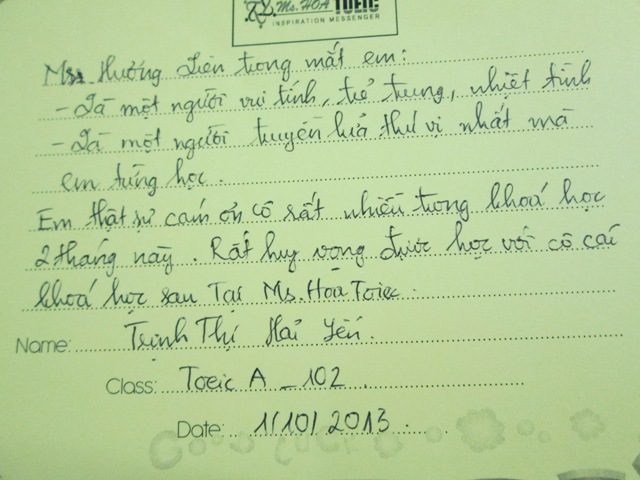 Ms. HOA TOEIC
INSPIRATION MESSENGER
Ms. Hương Liên trong mắt em:
- Là một người vui tính, trẻ trung, nhiệt tình
- Là một người truyền lửa thú vị nhất mà
em từng học.
Em thật sự cám ơn cô rất nhiều trong khoá học
2 tháng này. Rất hy vọng được học với cô các
khoá học sau Tại Ms. Hoa Toeic.
Name: Trịnh Thị Hải Yến.
Class: Toeic A - 102
Date: 1/10/2013
GOOD LUCK